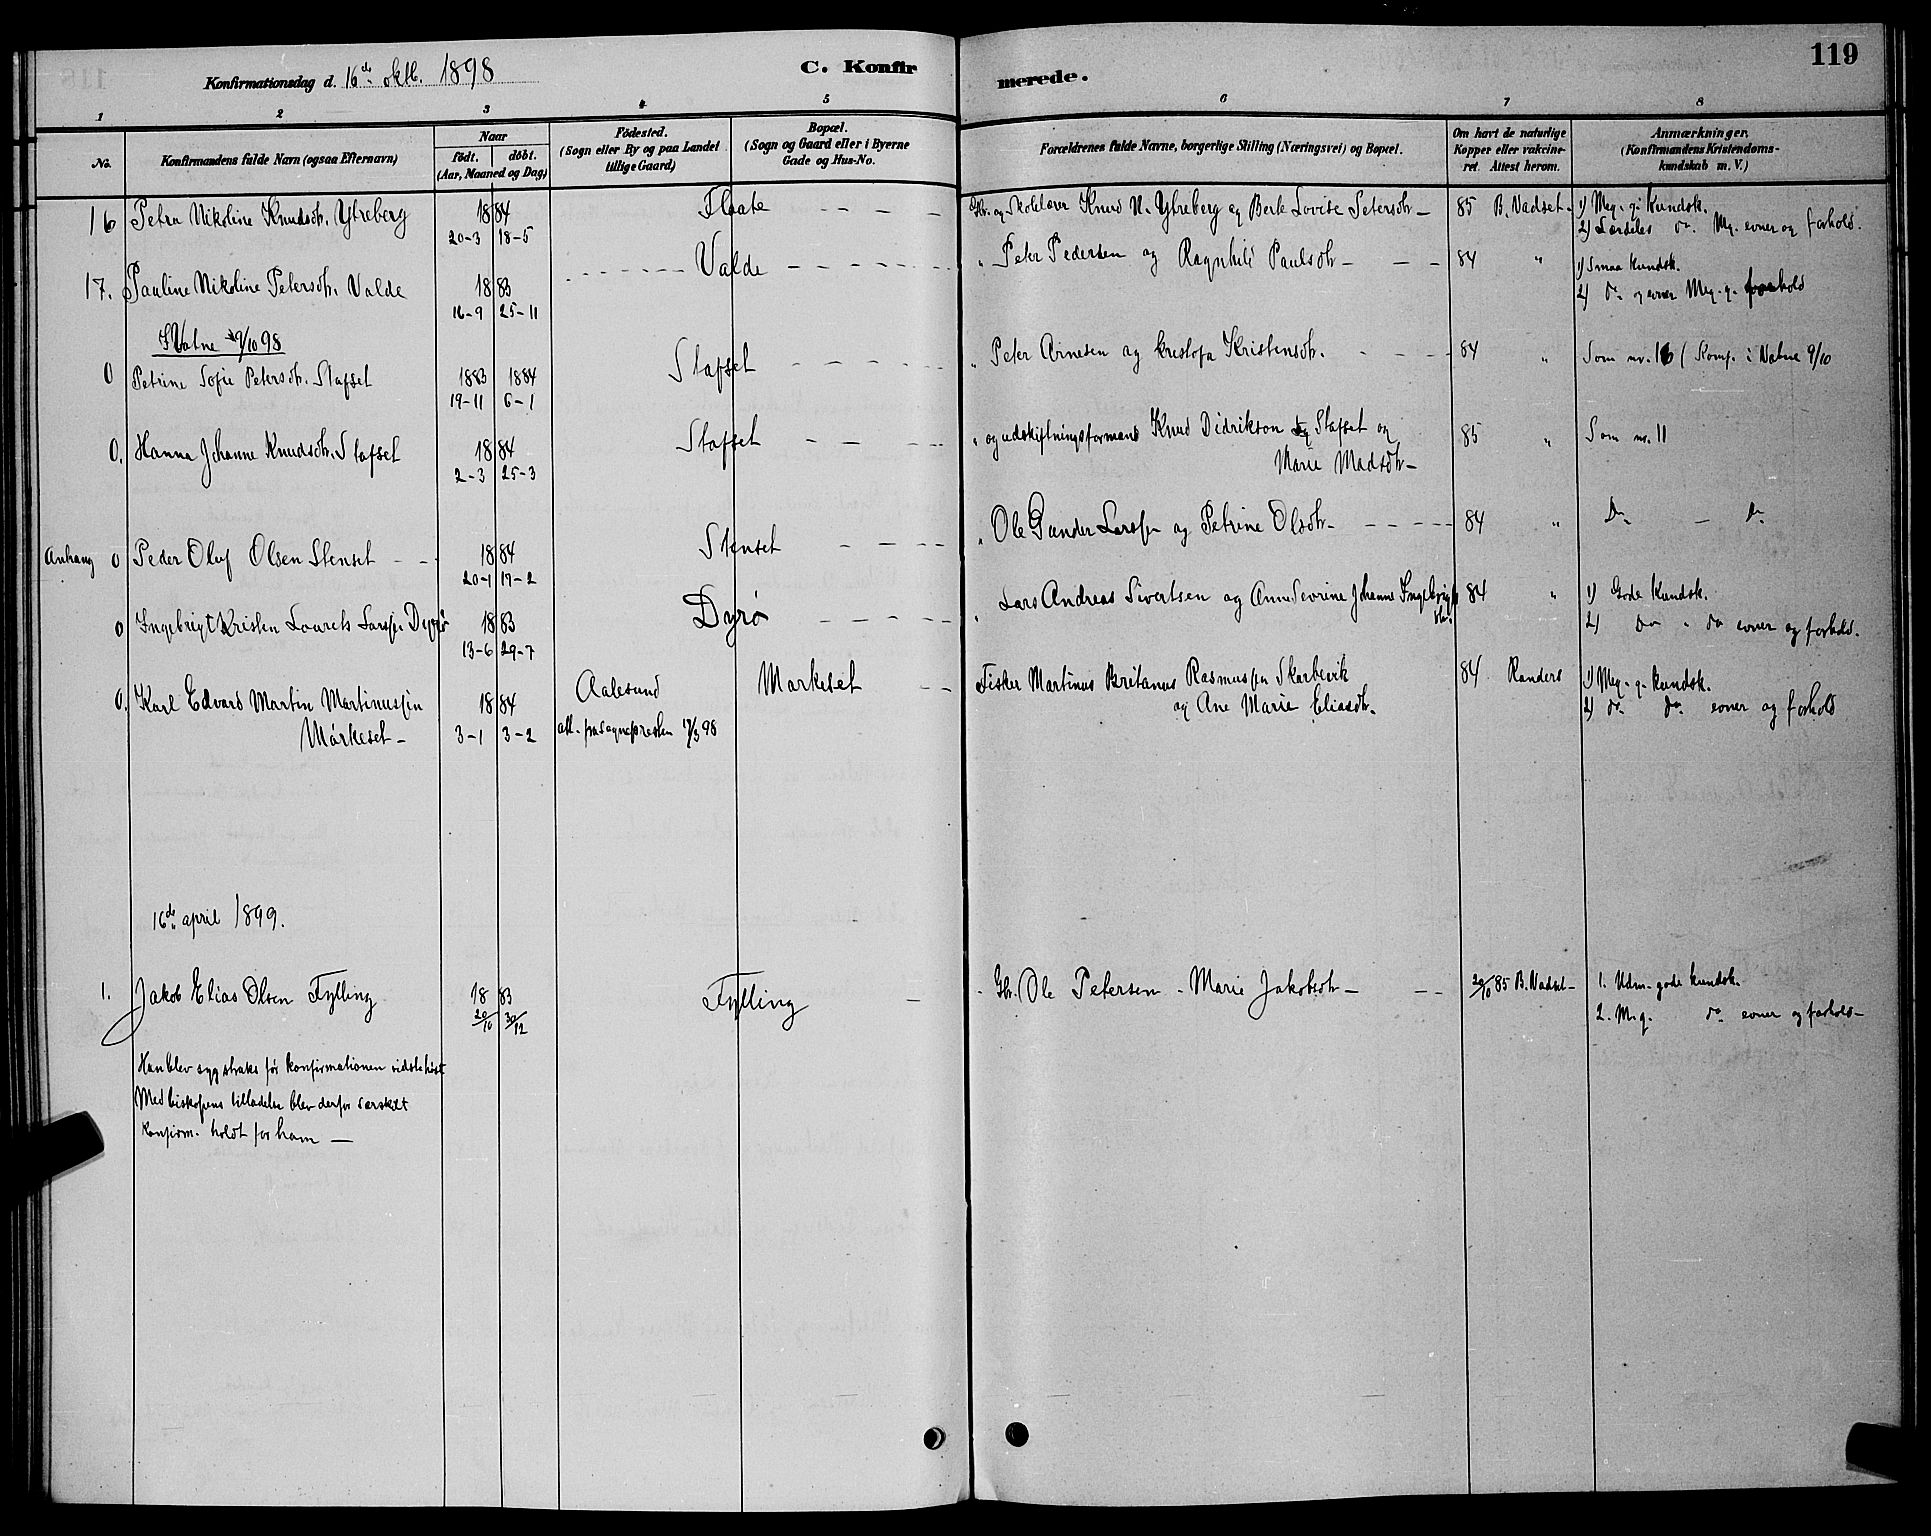 119
Konfirmationsdag d. 16de oktb. 1898
C. Konfirmerede.
1 2 3 4 5 6 7 8
No.
Konfirmandens fulde Navn (ogsaa Efternavn)
Naar
födt. döbt.
(Aar, Maaned og Dag)
Födested.
(Sogn eller By og paa Landet
tillige Gaard)
Bopæl.
(Sogn og Gaard eller i Byerne
Gade og Hus-No.
Forældrenes fulde Navne, borgerlige Stilling (Næringsvei) og Bopæl.
Om havt de naturlige
Kopper eller vakcine-
ret. Attest herom.
Anmærkninger.
(Konfirmandens Kristendoms-
kundskab m. V.)
16 Petra Nikoline Knudsdtr. Ytreberg 1884 Flaate Gbr. og Skolelærer Knud N. Ytreberg og Berte Lovise Petersdtr - 85 B. Vadset - 1) Meg. g. Kundsk.
20-3 18-5 2) Særdeles do. Mg. evner og forhold.
17. Pauline Nikoline Petersdtr. Valde 1883 Valde " Peter Pedersen og Ragnhild Paulsdtr - 84 " 1) Smaa kundsk.
16-9 25-11 2) do og evner Meg. g. forhold
I Vatne 9/10 98
0 Petrine Sofie Petersdtr. Slafset 1883 1884 Slafset " Peter Arnesen og Kristensdtr. 84 " Som nr. 16 (Konf. i Vatne 9/10
19-11 6-1
0. Hanna Johanne Knudsdtr. Slafset 1884 Slafset " og udskiftningsformand Knud Didrikson Slafset og 85 " Som nr. 11
2-3 25-3 Marie Madsdtr -
Anhang 0 Peder Oluf Olsen Stenset 1884 Stenset " Ole Gunder Larssen og Petrine Olsdtr - 84 " Do - Do
20-1 17-2
0 Ingebrigt Kristen Lourets Larssen Dyrø 1883 Dyrø " Lars Andreas Sivertsen og Anne Severine Johanne Ingebrigts 84 " 1) Gode Kundsk.
13-6 29-7 dtr. 2) Do " do evner og forhold.
0. Karl Edvard Martin Martinussen 1884 Aalesund Markeset Fisker Martinus Britanus Rasmussen Skarbevik 84 Randers 1) Meg. g. kundsk.
Mørkeset - 3-1 3-2 att. fra sognepresten 98 og Ane Marie Eliasdtr. 2) do do. evner og forhold
16de april 1899.
1. Jakob Elias Olsen Fylling 1883 Fylling Gbr. Ole Petersen - Marie Jakobsdtr - 20/10 85 B. Vadset - 1. Udm. gode kundsk.
20/10 30/12 2. M.g. do evner og forhold -
Han blev syg straks før konfirmationen sidste høst
Med biskopens tilladelse blev derfor særskilt
Konfirm. holdt for ham -